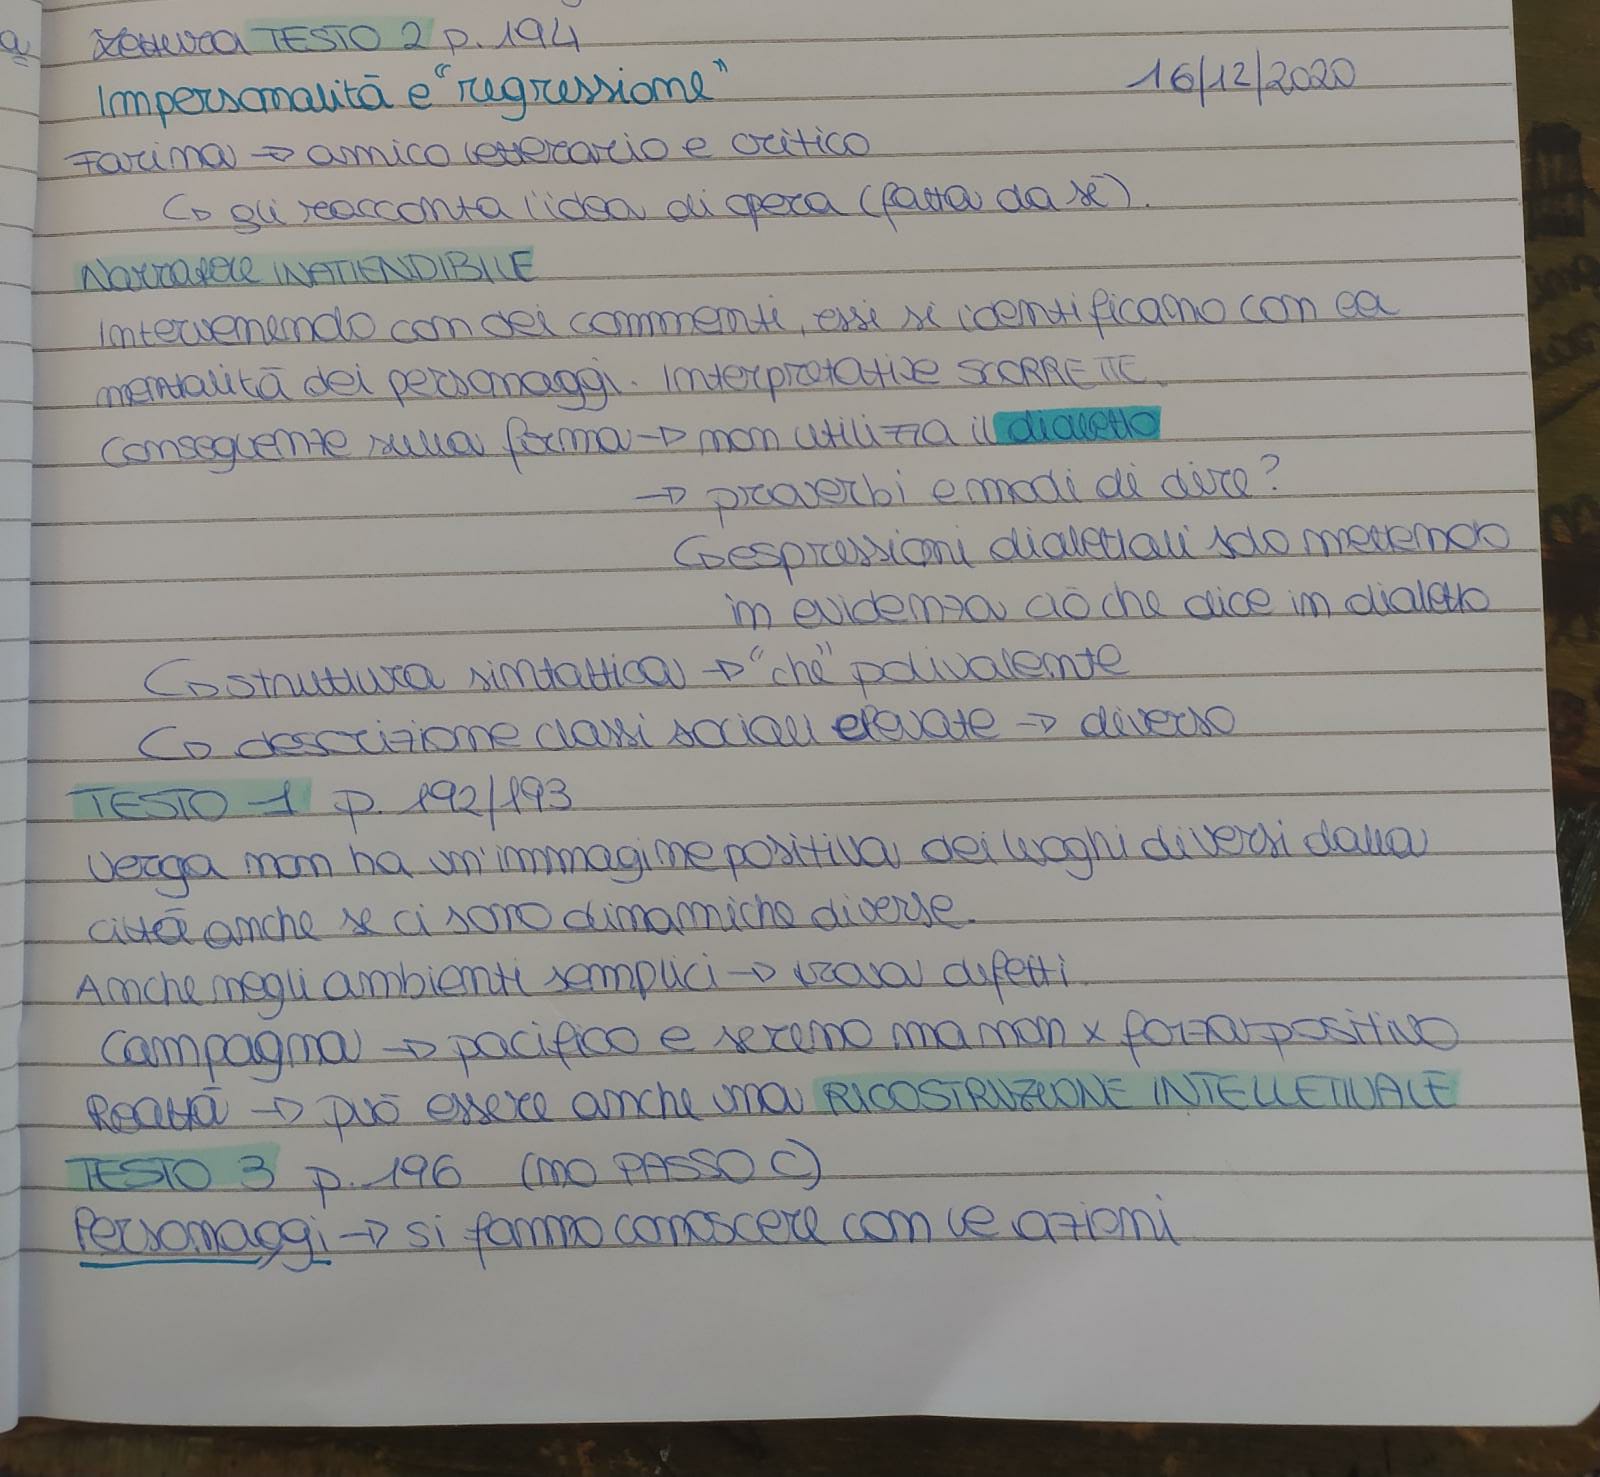 Lettura TESTO 2 p. 194
Impersonalità e "regressione"
16/12/2020
Farina → amico letterario e critico
↳ gli racconta l'idea di opera (fatta da sé).
Narratore INATTENDIBILE
Intervenendo con dei commenti, essi si identificano con la
mentalità dei personaggi. Interpretative SCORRETTE.
Conseguenze sulla forma → non utilizza il dialetto
→ proverbi e modi di dire?
↳ espressioni dialettali solo mettendo
in evidenza ciò che dice in dialetto
↳ struttura sintattica → "che" polivalente
↳ descrizione classi sociali elevate → diverso
TESTO 1 p. 192/193
Verga non ha un'immagine positiva dei luoghi diversi dalla
città anche se ci sono dinamiche diverse.
Anche negli ambienti semplici → trova difetti
Campagna → pacifico e sereno ma non x forza positivo
Realtà → può essere anche una RICOSTRUZIONE INTELLETTUALE
TESTO 3 p. 196 (no PASSO C)
Personaggi → si fanno conoscere con le azioni